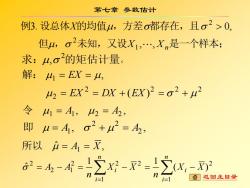 第七章 参数估计
例3. 设总体X的均值μ，方差σ²都存在，且σ² > 0,
但μ，σ²未知，又设X₁,⋯,Xₙ是一个样本；
求：μ,σ²的矩估计量。
解：μ₁ = EX = μ,
μ₂ = EX² = DX + (EX)² = σ² + μ²
令 μ₁ = A₁, μ₂ = A₂,
即 μ = A₁, σ² + μ² = A₂,
所以 μ̂ = A₁ = X̄,
σ̂² = A₂ − A₁² = 1/n ∑ᵢ₌₁ⁿ Xᵢ² − X̄² = 1/n ∑ᵢ₌₁ⁿ (Xᵢ − X̄)²
返回主目录